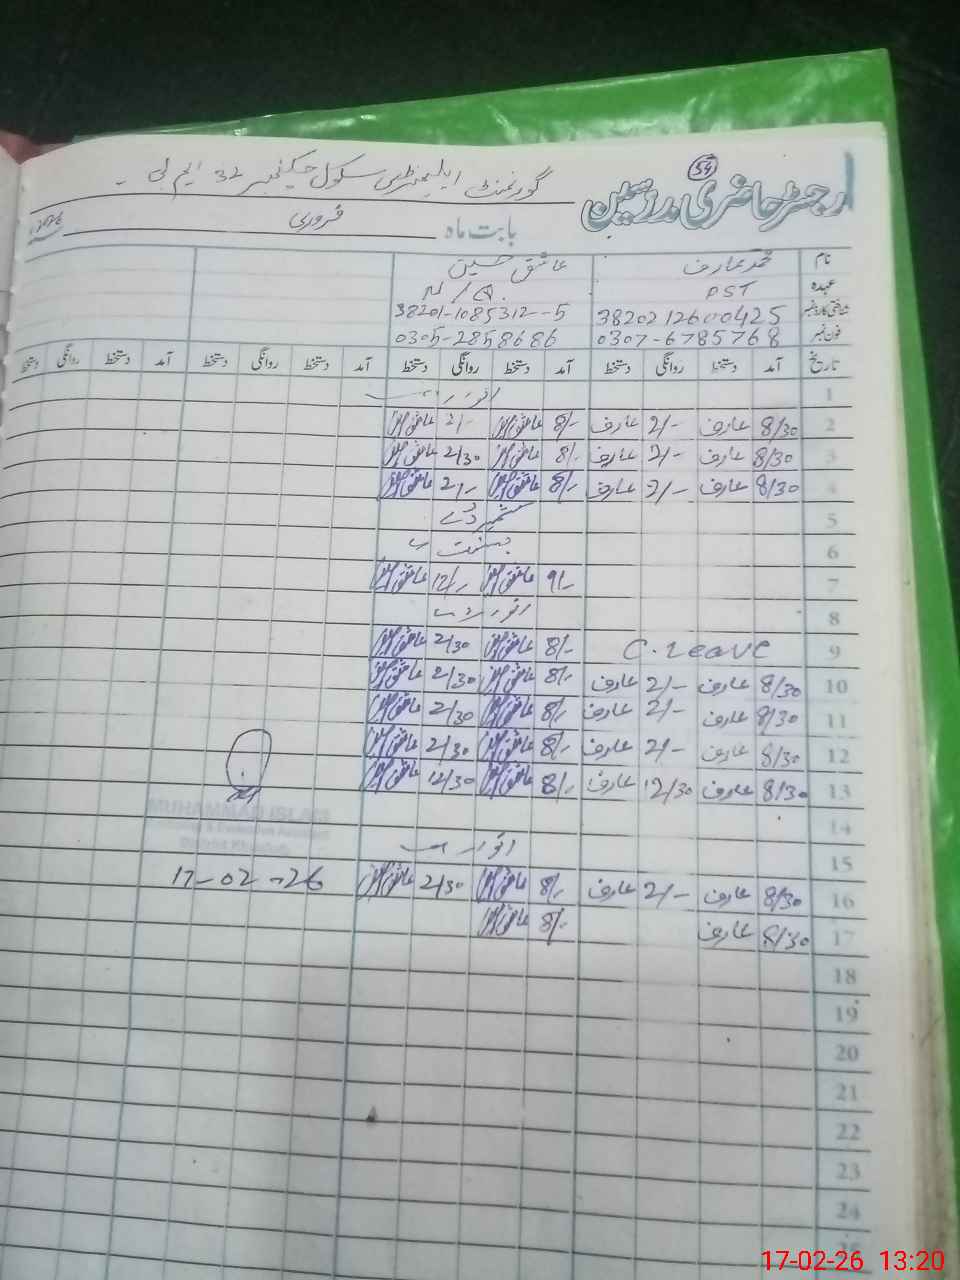 54
رجسٹر حاضری مدرسین
گورنمنٹ ایلیمنٹری سکول چک نمبر 32 ایم بی
بابت ماہ فروری
نام محمد عارف عاشق حسین
عہدہ PST
شناختی کارڈ نمبر 3820212600425 38201-1085312-5
فون نمبر 0307-6785768 0305-2858686
تاریخ آمد دستخط روانگی دستخط آمد دستخط روانگی دستخط آمد دستخط روانگی دستخط آمد دستخط روانگی دستخط
1 اتوار
2 8/30 عارف 2/- عارف 8/- عاشق حسین 2/- عاشق حسین
3 8/30 عارف 2/- عارف 8/- عاشق حسین 2/30 عاشق حسین
4 8/30 عارف 2/- عارف 8/- عاشق حسین 2/- عاشق حسین
5 کشمیر ڈے
6 بسنت
7 9/- عاشق حسین 12/- عاشق حسین
8 اتوار
9 C. Leave 8/- عاشق حسین 2/30 عاشق حسین
10 8/30 عارف 2/- عارف 8/- عاشق حسین 2/30 عاشق حسین
11 8/30 عارف 2/- عارف 8/- عاشق حسین 2/30 عاشق حسین
12 8/30 عارف 2/- عارف 8/- عاشق حسین 2/30 عاشق حسین
13 8/30 عارف 12/30 عارف 8/- عاشق حسین 12/30 عاشق حسین
14
MUHAMMAD ISLAM
Monitoring & Evaluation Assistant
District Khushab
15 اتوار
16 8/30 عارف 2/- عارف 8/- عاشق حسین 2/30 عاشق حسین 17-02-26
17 8/30 عارف 8/- عاشق حسین
18
19
20
21
22
23
24
25
17-02-26 13:20